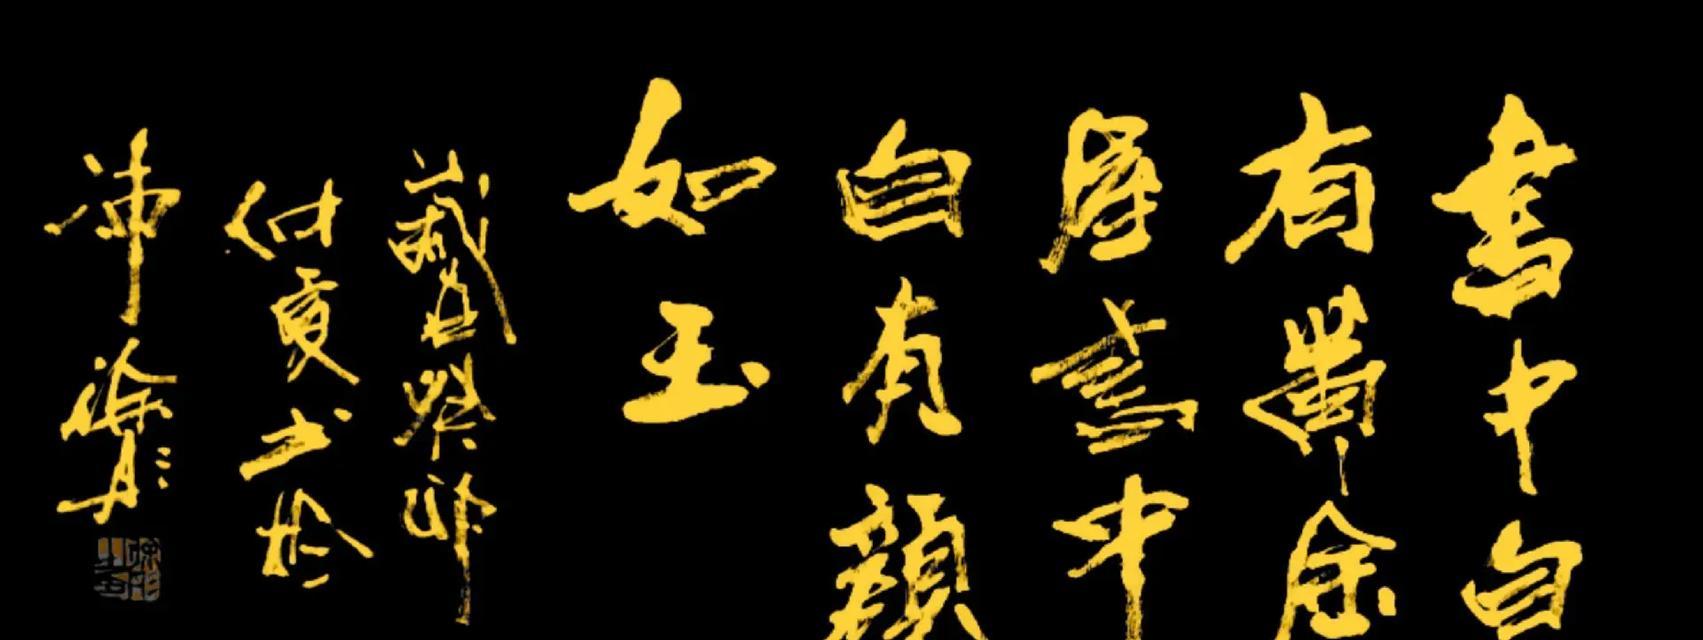 書中自
有黄金
屋書中
自有顏
如玉
歲在癸卯
仲夏书於
沛